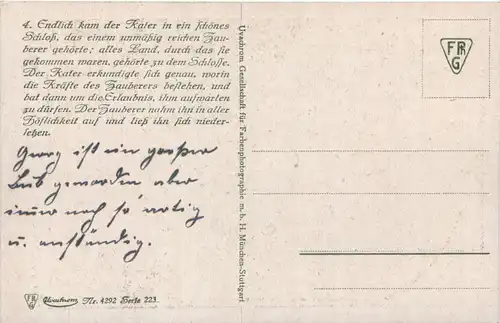 4. Endlich kam der Kater in ein schönes
Schloß, das einem unmäßig reichen Zau-
berer gehörte; alles Land, durch das sie
gekommen waren, gehörte zu dem Schlosse.
Der Kater erkundigte sich genau, worin
die Kräfte des Zauberers bestehen, und
bat dann um die Erlaubnis, ihm aufwarten
zu dürfen. Der Zauberer nahm ihn in aller
Höflichkeit auf und ließ ihn sich nieder-
setzen.
Georg ist ein großer
Bub geworden aber
immer noch so artig
u. anständig.
FR
G
Uvachrom Nr. 4292 Serie 223
Uvachrom Gesellschaft für Farbenphotographie m. b. H. München-Stuttgart
FR
G